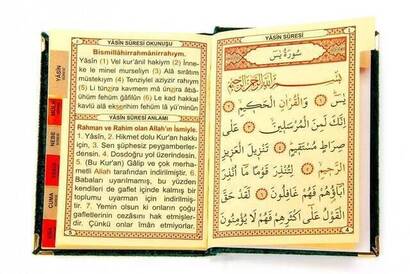 YÂSÎN SÛRESİ OKUNUŞU
Bismillâhirrahmânirrahıym.
Yâsîn (1) Vel kur'ânil hakiym (2) İnne-
ke le minel murseliyn (3) Alâ sırâtım
müstekıym (4) Tenziylel aziyzir rahıym.
(5) Li tünzira kavmem mâ ünzira âbâ-
ühüm fehüm ğâfilûn (6) Le kad hakkal
kavlü alâ ekserihim fehüm lâ yü'minûn
YÂSÎN SÛRESİ ANLAMI
Rahman ve Rahim olan Allah'ın İsmiyle.
1. Yâsîn, 2. Hikmet dolu Kur'an hakkı
için, 3. Sen şüphesiz peygamberler-
densin. 4. Dosdoğru yol üzerindesin.
5. (Bu Kur'an) Gâlip ve çok merha-
metli Allah tarafından indirilmiştir. 6.
Babaları uyarılmamış, bu yüzden
kendileri de gaflet içinde kalmış bir
toplumu uyarman için indirilmiş-
tir. 7. Yemin olsun ki onların çoğu
gafletlerinin cezasını hak etmişler-
dir. Çünkü onlar îman etmiyorlar.
YÂSİN
NEBE
CUMA
YÂSÎN SÛRESİ
سُورَةُ يٰسٓ
بِسْمِ اللّٰهِ الرَّحْمٰنِ الرَّحِيمِ
يٰسٓ ﴿١﴾ وَالْقُرْاٰنِ الْحَكِيمِ ﴿٢﴾
اِنَّكَ لَمِنَ الْمُرْسَلِينَ ﴿٣﴾ عَلٰى
صِرَاطٍ مُسْتَقِيمٍ ﴿٤﴾ تَنْزِيلَ الْعَزِيزِ
الرَّحِيمِ ﴿٥﴾ لِتُنْذِرَ قَوْمًا مَٓا اُنْذِرَ
اٰبَٓاؤُهُمْ فَهُمْ غَافِلُونَ ﴿٦﴾ لَقَدْ حَقَّ
الْقَوْلُ عَلٰٓى اَكْثَرِهِمْ فَهُمْ لَا يُؤْمِنُونَ
4